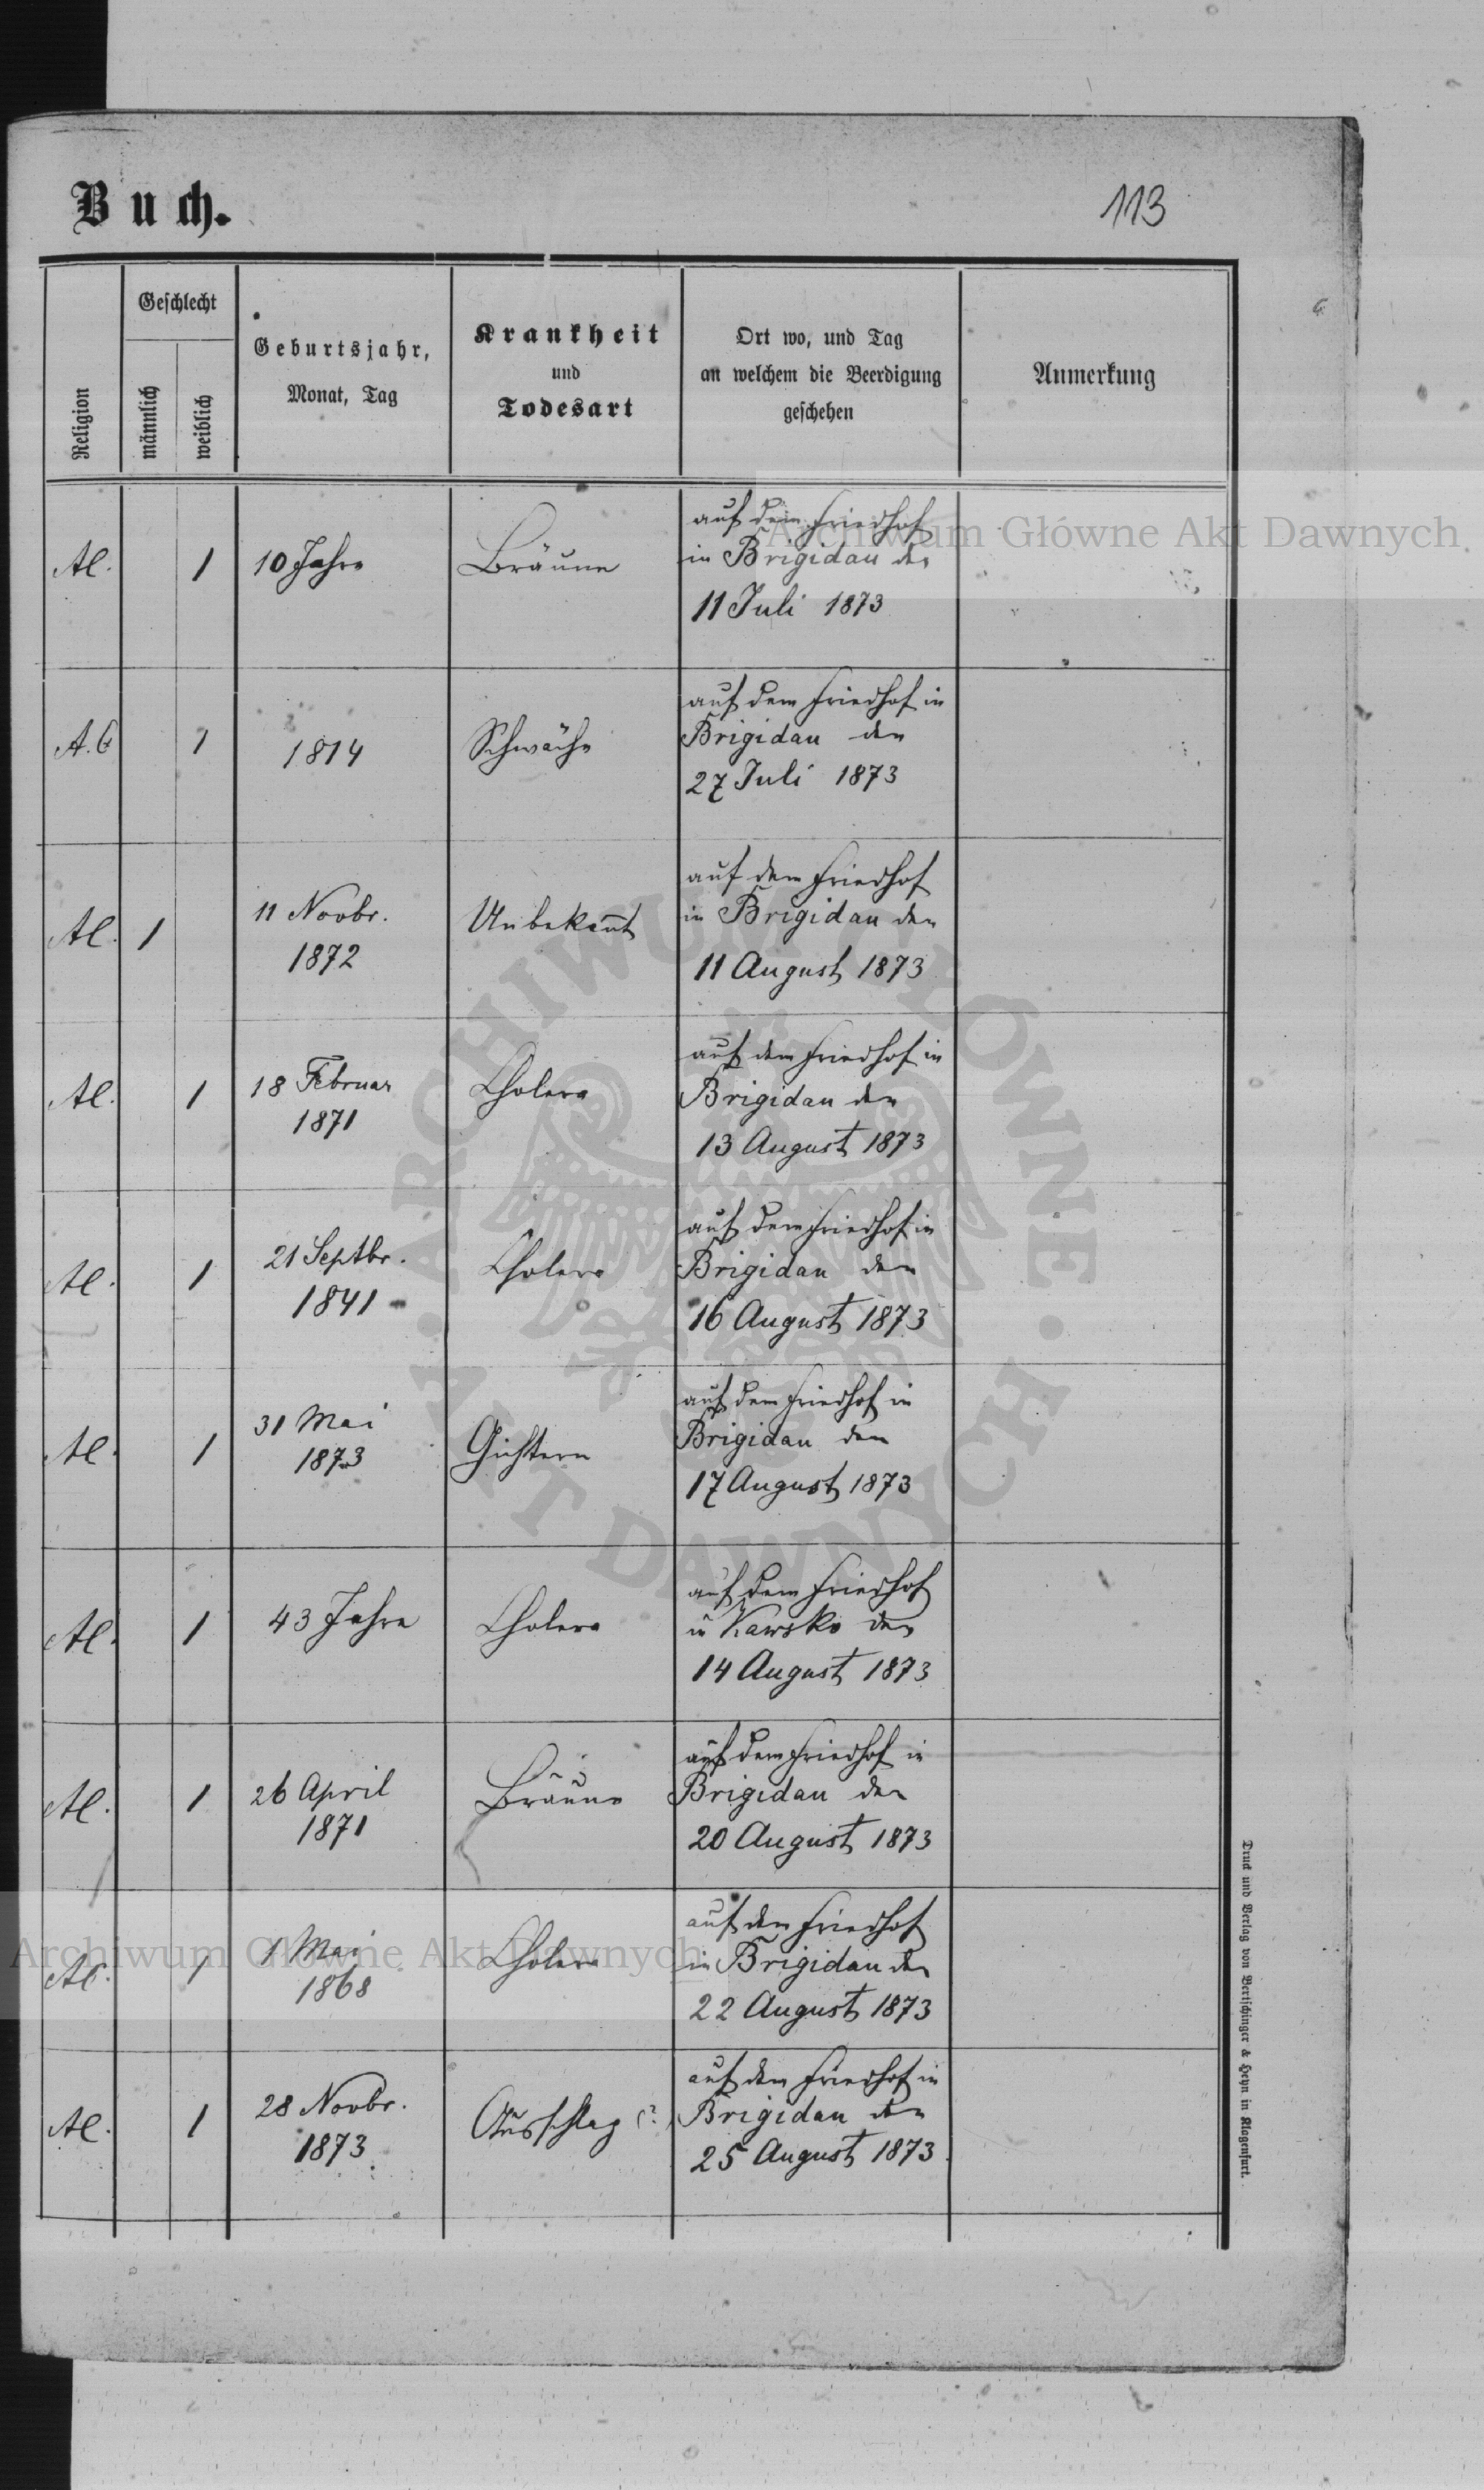 Buch.
113
Religion
Geschlecht
männlich
weiblich
Geburtsjahr,
Monat, Tag
Krankheit
und
Todesart
Ort wo, und Tag
an welchem die Beerdigung
geschehen
Anmerkung
Al. 1 10 Jahre Bräune
auf dem Friedhof
in Brigidau den
11 Juli 1873
A.C 1 1814 Schwäche
auf dem Friedhof in
Brigidau den
27 Juli 1873
Al. 1 11 Novbr.
1872
Unbekannt
auf dem Friedhof
in Brigidau den
11 August 1873
Al. 1 18 Februar
1871
Cholera
auf dem Friedhof in
Brigidau den
13 August 1873
Al. 1 21 Septbr.
1841
Cholera
auf dem Friedhof in
Brigidau den
16 August 1873
Al. 1 31 Mai
1873
Gichtern
auf dem Friedhof in
Brigidau den
17 August 1873
Al. 1 43 Jahre Cholera
auf dem Friedhof
in Kawsko den
14 August 1873
Al. 1 26 April
1871
Bräune
auf dem Friedhof in
Brigidau den
20 August 1873
Al. 1 1 Mai
1868
Cholera
auf dem Friedhof
in Brigidau den
22 August 1873
Al. 1 28 Novbr.
1873
Ausschlag (?)
auf dem Friedhof in
Brigidau den
25 August 1873
Druck und Verlag von Bertschinger & Heyn in Klagenfurt.
Archiwum Główne Akt Dawnych
ARCHIWUM GŁÓWNE
AKT DAWNYCH
Archiwum Główne Akt Dawnych